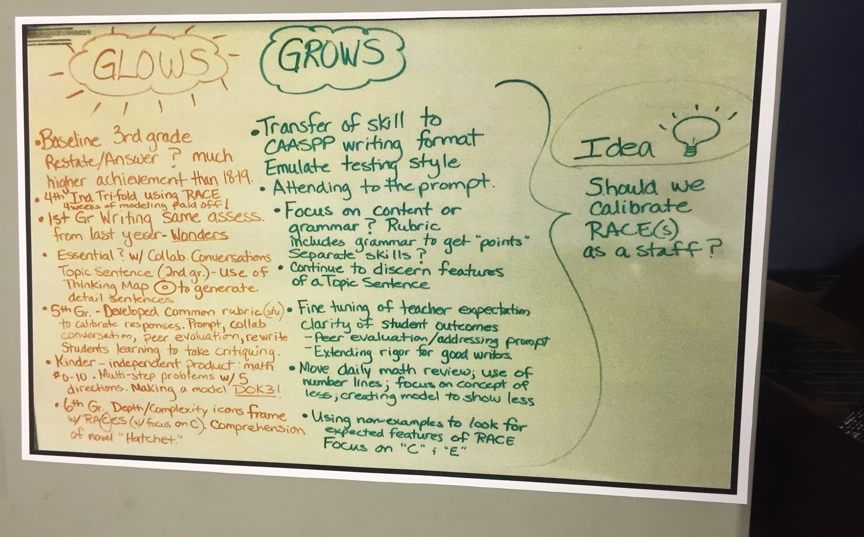 GLOWS
•Baseline 3rd grade
Restate/Answer ? much
higher achievement than 18-19.
•4th Ind Trifold using RACE
4 weeks of modeling paid off!
•1st Gr Writing same assess.
from last year- Wonders
• Essential ? w/ Collab. Conversations
Topic Sentence (2nd gr.) - Use of
Thinking Map to generate
detail sentences
•5th Gr. - Developed common rubric (stu)
to calibrate responses. Prompt, collab
conversation, peer evaluation, rewrite
Students learning to take critiquing.
•Kinder - independent product: math
#0-10. Multi-step problems w/ 5
directions. Making a model DOK3!
•6th Gr. Depth/Complexity icons frame
w/ RACes (w/ focus on C). Comprehension
of novel "Hatchet."
GROWS
•Transfer of skill to
CAASPP writing format
Emulate testing style
•Attending to the prompt.
•Focus on content or
grammar? Rubric
includes grammar to get "points"
Separate skills?
•Continue to discern features
of a Topic Sentence
•Fine tuning of teacher expectation
clarity of student outcomes
-Peer evaluation/addressing prompt
-Extending rigor for good writers.
•Move daily math review; use of
number lines; focus on concept of
less; creating model to show less
•Using non-examples to look for
expected features of RACE
Focus on "C" & "E"
Idea
Should we
calibrate
RACE(s)
as a staff?